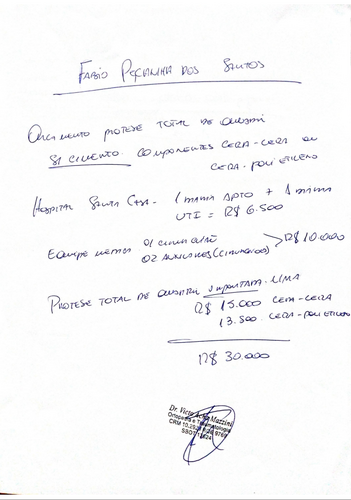 FABIO PEÇANHA DOS SANTOS
ORÇAMENTO PROTESE TOTAL DE QUADRIL
S/ CIMENTO. COMPONENTES CERA-CERA OU
CERA-POLIETILENO
HOSPITAL SANTA CASA - 1 DIARIA APTO + 1 DIARIA
UTI = R$ 6.500
EQUIPE MEDICA 01 CIRURGIÃO
02 AUXILIARES (CIRURGIÕES) > R$ 10.000
PROTESE TOTAL DE QUADRIL IMPORTADA
R$ 15.000 CERA-CERA
13.500 CERA-POLIETILENO
R$ 30.000
Dr. Victor Mazzini
Ortopedia e Traumatologia
CRM
SBOT